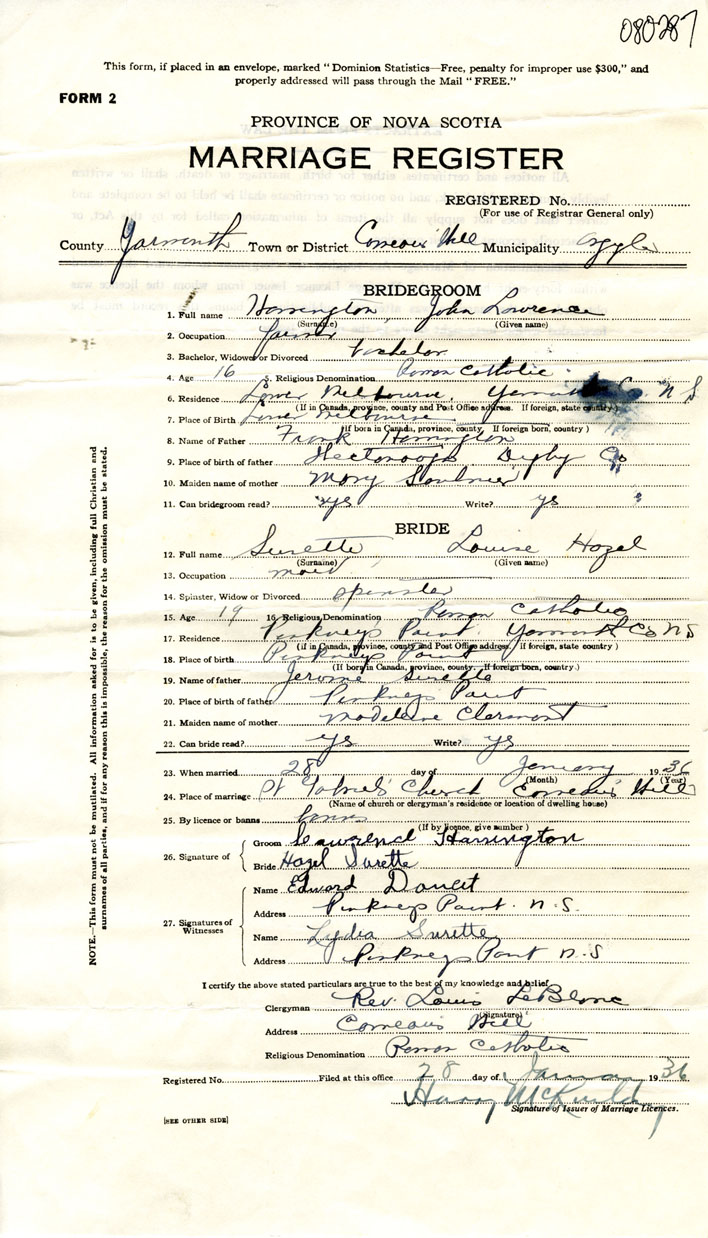 080287
This form, if placed in an envelope, marked "Dominion Statistics—Free, penalty for improper use $300," and
properly addressed will pass through the Mail "FREE."
FORM 2
PROVINCE OF NOVA SCOTIA
MARRIAGE REGISTER
REGISTERED No.
(For use of Registrar General only)
County Yarmouth Town or District Comeau's Hill Municipality Argyle
BRIDEGROOM
1. Full name Harrington, John Lawrence
(Surname) (Given name)
2. Occupation farmer
3. Bachelor, Widower or Divorced bachelor
4. Age 16 5. Religious Denomination Roman Catholic
6. Residence Lower Melbourne, Yarmouth Co. N S
(If in Canada, province, county and Post Office address. If foreign, state country)
7. Place of Birth Lower Melbourne
(If born in Canada, province, county. If foreign born, country)
8. Name of Father Frank Harrington
9. Place of birth of father Hectanooga Digby Co
10. Maiden name of mother Mary Saulnier
11. Can bridegroom read? yes Write? ys
BRIDE
12. Full name Surette, Louise Hazel
(Surname) (Given name)
13. Occupation maid
14. Spinster, Widow or Divorced spinster
15. Age 19 16. Religious Denomination Roman Catholic
17. Residence Pinkneys Point Yarmouth Co N S
(if in Canada, province, county and Post Office address. If foreign, state country)
18. Place of birth Pinkneys Point
(If born in Canada, province, county. If foreign born, country.)
19. Name of father Jerome Surette
20. Place of birth of father Pinkneys Point
21. Maiden name of mother Madeleine Clermont
22. Can bride read? ys Write? ys
23. When married 28 day of January 1936
(Month) (Year)
24. Place of marriage St Church Comeau's Hill
(Name of church or clergyman's residence or location of dwelling house)
25. By licence or banns banns
(If by licence, give number)
26. Signature of
Groom Lawrence Harrington
Bride Hazel Surette
27. Signatures of Witnesses
Name Edward Doucet
Address Pinkneys Point. N.S.
Name Lydia Surette
Address Pinkneys Point N.S
I certify the above stated particulars are true to the best of my knowledge and belief
Clergyman Rev. Louis LeBlanc
(Signature)
Address Comeau's Hill
Religious Denomination Roman Catholic
Registered No. Filed at this office 28 day of January 1936
Harry
Signature of Issuer of Marriage Licences.
[SEE OTHER SIDE]
NOTE.—This form must not be mutilated. All information asked for is to be given, including full Christian and
surnames of all parties, and if for any reason this is impossible, the reason for the omission must be stated.